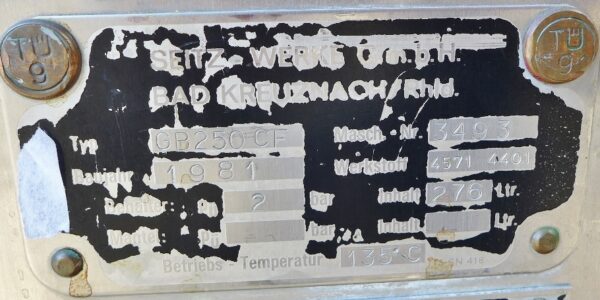 TÜ 9
TÜ 9
SEITZ-WERKE G.m.b.H.
BAD KREUZNACH/Rhld.
Typ GB250 CF Masch.-Nr. 3493
Baujahr 1981 Werkstoff 4571 4401
Behälter: Pp 2 bar Inhalt 276 Ltr.
Mantel: Pp bar Inhalt Ltr.
Betriebs-Temperatur 135°C
SN 416